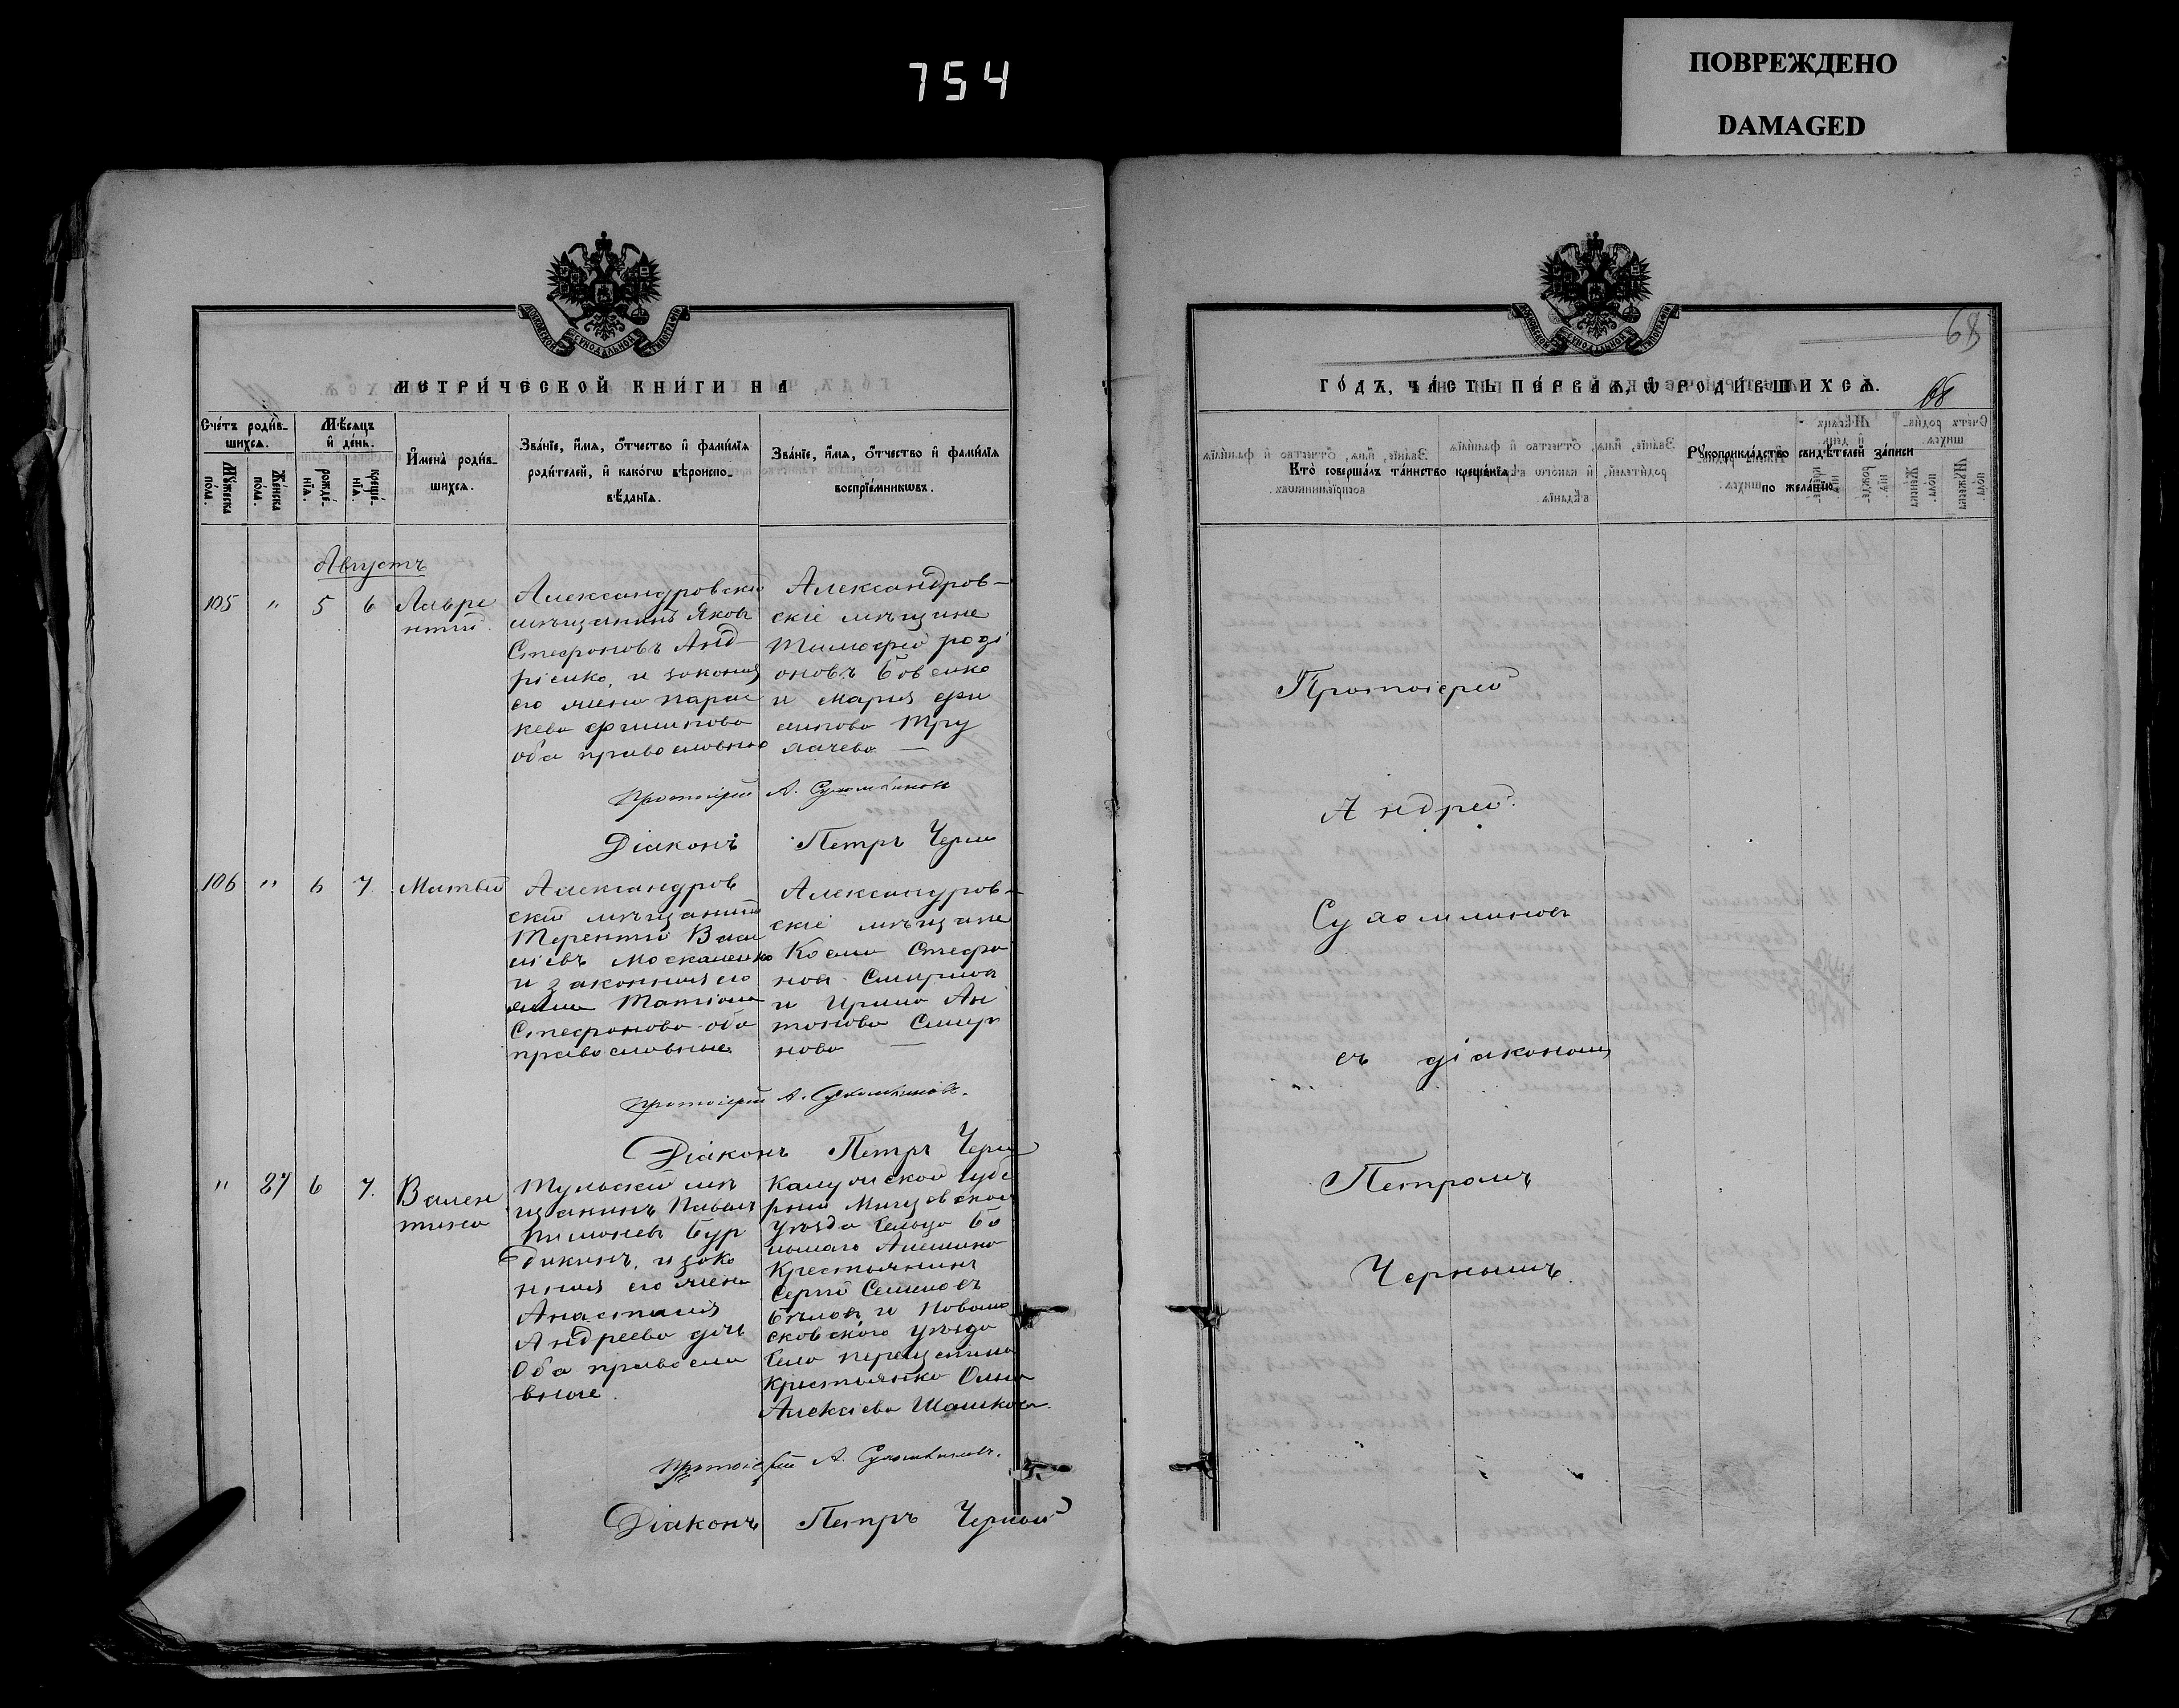 754
ПОВРЕЖДЕНО
DAMAGED
МОСКОВСКОЙ СѴНОДАЛЬНОЙ ТИПОГРАФІИ
МЕТРИ́ЧЕСКОЙ КНИ́ГИ НА
Сче́тъ роди́в-
шихсѧ.
Мꙋ́жеска
по́ла.
Же́нска
по́ла.
Мѣ́сяцъ
и҆ де́нь.
рожде́-
нїѧ.
креще́-
нїѧ.
И҆мена̀ роди́в-
шихсѧ.
Зва́нїе, и҆́мѧ, ѻ҆́тчество и҆ фами́лїѧ
роди́телей, и҆ како́гѡ вѣроиспо-
вѣ́данїѧ.
Зва́нїе, и҆́мѧ, ѻ҆́тчество и҆ фами́лїѧ
воспрїе́мникѡвъ.
Августъ
105 " 5 6 Лавре
нтій.
Александровскій
мѣщанинъ Яковъ
Стефановъ Анд
ріенко, и законная
его жена Парас
кева Филипова
оба православные
Александров-
скіе мѣщане
Тимофей Роді
оновъ Бовенко
и Марія Фи
липова Тру
хачева —
Протоіерей А. Сухомлиновъ
Діаконъ Петръ Черный
106 " 6 7 Матвій
Александров
скій мѣщанинъ
Терентій Васи
ліевъ Москаленко
и законная его
жена Матрона
Стефанова оба
православные.
Александров-
скіе мѣщане
Косма Стефа
новъ Смирновъ
и Ирина Ан
тонова Смир
нова —
Протоіерей А. Сухомлиновъ.
Діаконъ Петръ Черный
" 87 6 7. Вален
тина
Тульскій мѣ
щанинъ Павелъ
Бур
дикинъ, и зако
нная его жена
Анастасія
Андреева дочь
Оба правосла
вные.
Калужской губе
рніи Мещовскаго
уѣзда Сельца Бо
льшаго Алешино
Крестьянинъ
Сергій Семеновъ
Бѣловъ, и Новомо
сковскаго уѣзда
Села Перещепина
Крестьянка Ольга
Алексіева Машкова.
Протоіерей А. Сухомлиновъ.
Діаконъ Петръ Черный
МОСКОВСКОЙ СѴНОДАЛЬНОЙ ТИПОГРАФІИ
68
ГО́ДЪ, ЧА́СТЬ ПЕ́РВАѦ, Ѡ҆ РОДИ́ВШИХСѦ.
68
Кто̀ соверша́лъ та́инство креще́нїѧ.
Рꙋкоприкла́дство свидѣ́телей за́писи
по жела́нїю.
Протоіерей
Андрей
Сухомлиновъ
съ діакономъ
Петромъ
Чернымъ.